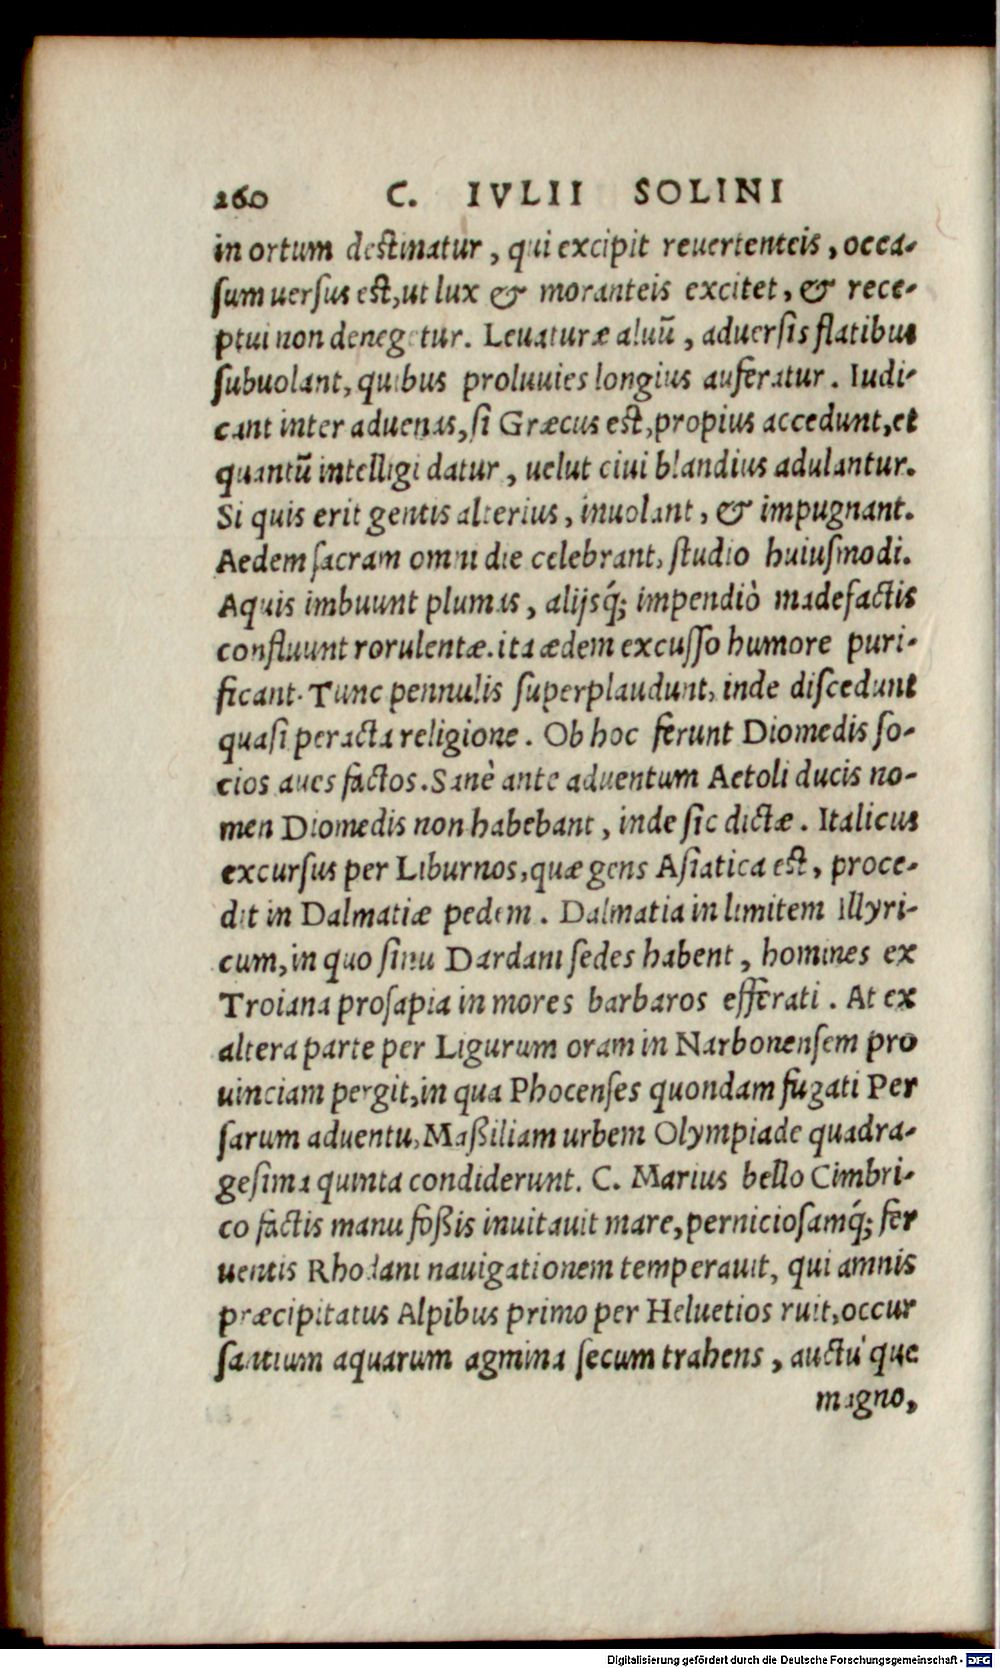 260 C. IVLII SOLINI
in ortum destinatur, qui excipit reuertenteis, occa-
sum uersus est, ut lux & moranteis excitet, & rece-
ptui non denegetur. Leuaturæ aluũ, aduersis flatibus
subuolant, quibus proluuies longius auferatur. Iudi-
cant inter aduenas, si Græcus est, propius accedunt, et
quantũ intelligi datur, uelut ciui blandius adulantur.
Si quis erit gentis alterius, inuolant, & impugnant.
Aedem sacram omni die celebrant, studio huiusmodi.
Aquis imbuunt plumas, alijsq́; impendiò madefactis
confluunt rorulentæ. ita ædem excusso humore puri-
ficant. Tunc pennulis superplaudunt, inde discedunt
quasi peracta religione. Ob hoc ferunt Diomedis so-
cios aues factos. Sanè ante aduentum Aetoli ducis no-
men Diomedis non habebant, inde sic dictæ. Italicus
excursus per Liburnos, quæ gens Asiatica est, proce-
dit in Dalmatiæ pedem. Dalmatia in limitem Illyri-
cum, in quo sinu Dardani sedes habent, homines ex
Troiana prosapia in mores barbaros efferati. At ex
altera parte per Ligurum oram in Narbonensem pro
uinciam pergit, in qua Phocenses quondam fugati Per
sarum aduentu, Maßiliam urbem Olympiade quadra-
gesima quinta condiderunt. C. Marius bello Cimbri-
co factis manu foßis inuitauit mare, perniciosamq́; fer
uentis Rhodani nauigationem temperauit, qui amnis
præcipitatus Alpibus primo per Heluetios ruit, occur
santium aquarum agmina secum trahens, auctu que
magno,
Digitalisierung gefördert durch die Deutsche Forschungsgemeinschaft - DFG